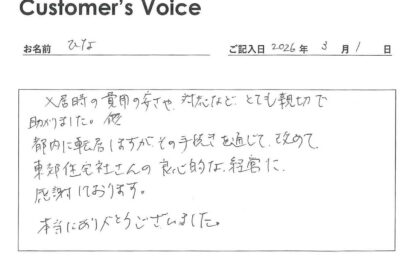 Customer's Voice
お名前 ひな ご記入日 2026 年 3 月 1 日
入居時の費用の安さや、対応など、とても親切で
助かりました。
都内に転居しますが、その手続きを通じて、改めて、
東郊住宅社さんの良心的な経営に、
感謝しております。
本当にありがとうございました。